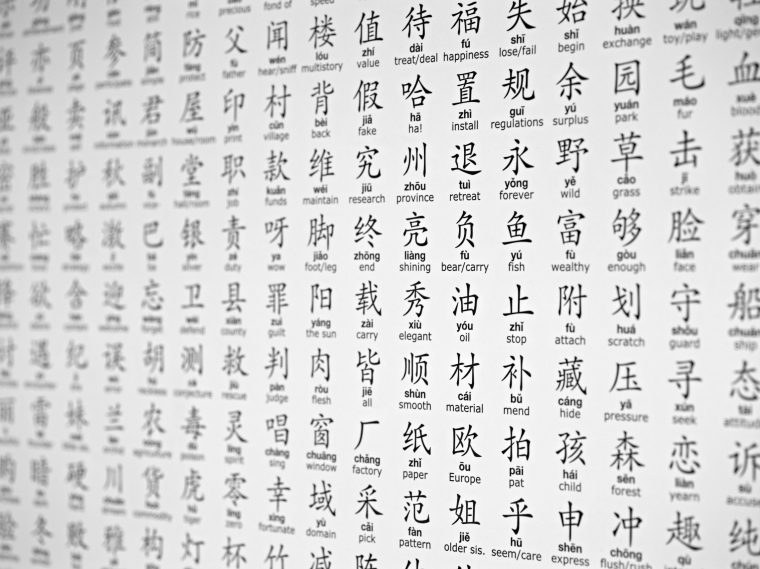 precious fond of speed
亦 页 参 简 防 父 闻 楼 值 待 福 失 始 换 玩
fáng fù wén lóu zhí dài fú shī shǐ huàn wán qīng
protect father hear/sniff multistory value treat/deal happiness lose/fail begin exchange toy/play
般 卖 讯 君 屋 印 村 背 假 哈 置 规 余 园 毛 血
wū yìn cūn bèi jiǎ hā zhì guī yú yuán máo xuè
house/room print village back fake ha! install regulations surplus park fur blood
胜 护 秋 副 堂 职 款 维 究 州 退 永 野 草 击 获
táng zhí kuǎn wéi jiū zhōu tuì yǒng yě cǎo jī huò
hall/room job funds maintain research province retreat forever wild grass strike obtain
忙 略 激 巴 银 责 呀 脚 终 亮 负 鱼 富 够 脸 穿
yín zé ya jiǎo zhōng liàng fù yú fù gòu liǎn chuān
silver duty wow foot/leg end shining bear/carry fish wealthy enough face wear
欲 含 迎 忘 卫 县 罪 阳 载 秀 油 止 附 划 守 船
wèi xiàn zuì yáng zài xiù yóu zhǐ fù huá shǒu chuán
defend county guilt the sun carry elegant oil stop attach scratch guard ship
遇 纪 误 胡 测 救 判 肉 皆 顺 材 补 藏 压 寻 态
cè jiù pàn ròu jiē shùn cái bǔ cáng yā xún tài
conjecture rescue judge flesh all smooth material mend hide pressure seek attitude
雷 妹 兰 农 毒 灵 唱 窗 厂 纸 欧 拍 孩 森 恋 诉
dú líng chàng chuāng chǎng zhǐ ōu pāi hái sēn liàn sù
poison spirit sing window factory paper Europe pat child forest yearn accuse
暗 硬 川 货 虎 零 幸 域 采 范 姐 乎 申 冲 趣 纯
hǔ líng xìng yù cǎi fàn jiě hū shēn chōng qù
tiger zero fortunate domain pick pattern older sis. seem/care express flush/rush
冬 败 雅 构 灯 杯 竹 减 陈